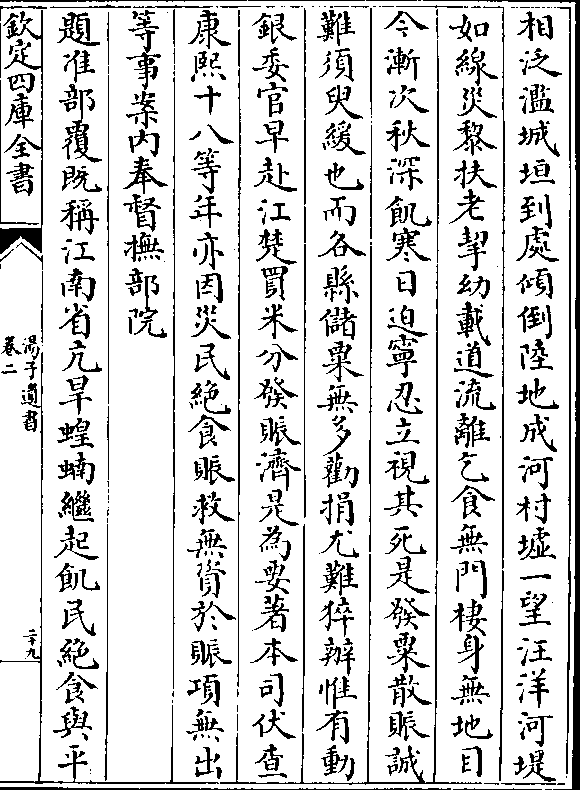 相泛濫城垣到處傾倒陸地成河村墟一望汪洋河堤
如線災黎扶老挈幼載道流離乞食無門棲身無地目
今漸次秋深飢寒日迫寧忍立視其死是發粟散賑誠
難須臾緩也而各縣儲粟無多勸捐尤難猝辦惟有動
銀委官早赴江楚買米分發賑濟是為要著本司伏查
康熙十八等年亦因災民絶食賑救無資於賑項無出
等事案内奉督撫部院
題准部覆既稱江南省亢旱蝗蝻繼起飢民絶食與平
欽定四庫全書
湯子遺書
卷二
二十九